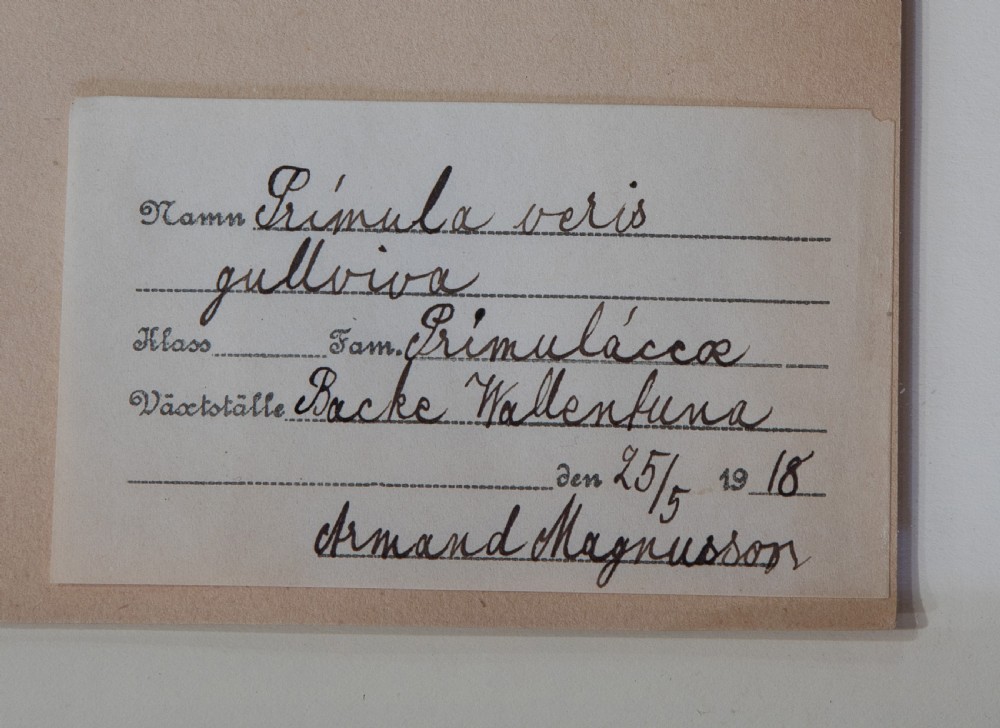 Namn Primula veris
gullviva
Klass Fam. Primuláceæ
Växtställe Backe Wallentuna
den 25/5 1918
Armand Magnusson